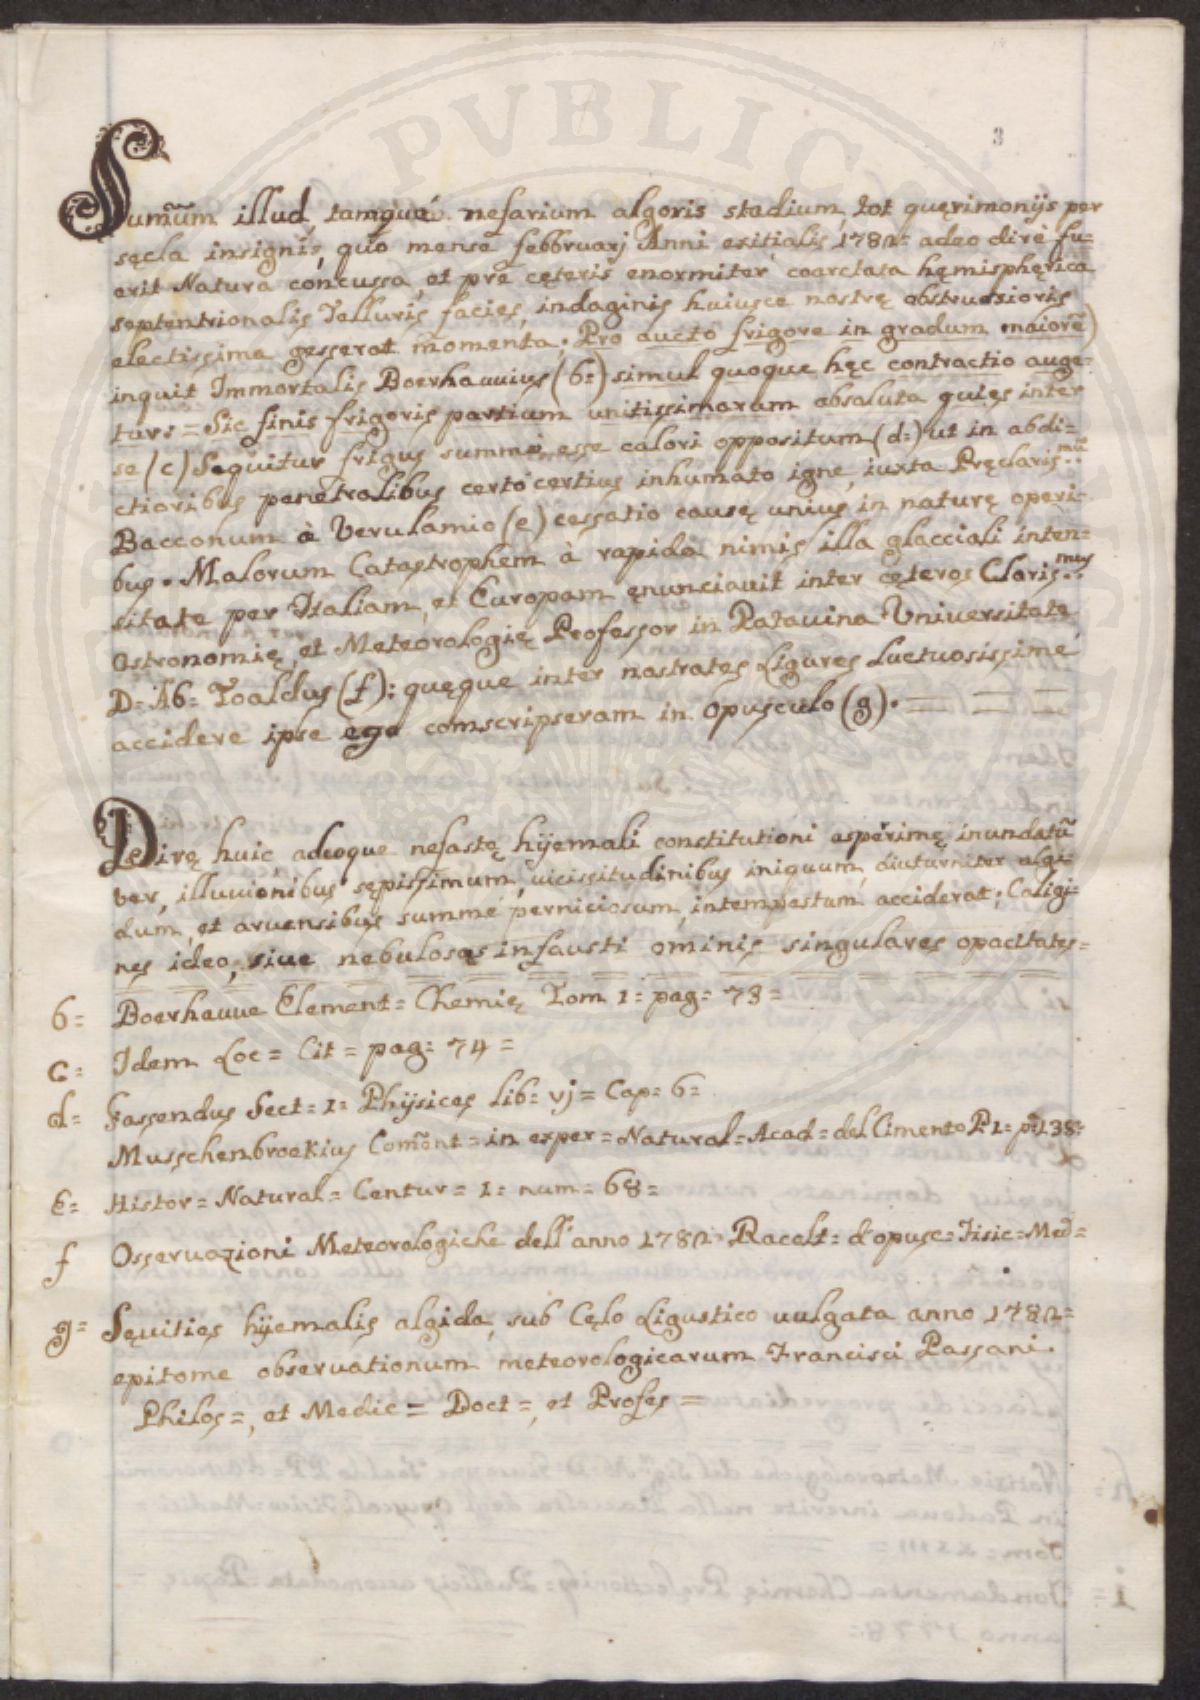 3
Sumũm illud, tamquã nefarium algoris stadium, tot quęrimonijs per
sęcla insignis, quo mense febbruarj Anni exitialis 1782= adeo dirè fu=
erit Natura concussa, et prę cęteris enormiter coarctata hęmisphęrica
septentrionalis Telluris facies, indaginis huiusce nostrę obstrusioris
electissima gesserat momenta; Pro aucto frigore in gradum maiorẽ)
inquit Immortalis Boerhauuius (b=) simul quoque hęc contractio auge=
tur: = Sic finis frigoris partium unitissimarum absoluta quies inter
se (c) Sequitur frigus summè esse calori oppositum (d=) ut in abdi=
ctioribus penetralibus certo certius inhumato igne, iuxta Pręclaris.mũ
Bacconum à Verulamio (e) cessatio causę unius in naturę operi=
bus. Malorum Catastrophem à rapida nimis illa glacciali inten=
sitate per Italiam, et Europam ęnunciauit inter cęteros Claris.mus
Astronomię, et Meteorologię Professor in Patauina Vniuersitate
D= Ab= Toaldus (f): quęque inter nostrates Ligures Luctuosissime
accidere ipse ego comscripseram in opusculo (g). = = =
Dirę huic, adeoque nefastę hijemali constitutioni asperimę inundatũ
ver, illuuionibus sępissimum, uicissitudinibus iniquum, diuturniter algi
dum, et aruensibus summè perniciosum, intempestum acciderat; Caligi=
nes ideo, siue nebulosas infausti ominis singulares opacitates=
b= Boerhauue Element= Chemię Tom 1= pag= 73=
c= Idem Loc= Cit= pag= 74=
d= Gassendus Sect= 1= Phijsices Lib= vj= Cap= 6=
Musschenbroekius Com̃ent= in exper= Natural= Acad= del Cimento P 1= p 138=
E= Histor= Natural= Centur= 1= num= 68=
f Osseruazioni Meteorologiche dell'anno 1782= Racolt= d'opusc= Fisic= Med=
g= Sęuities hijemalis algida, sub Cęlo Ligustico uulgata anno 1782=
epitome obseruationum meteorologicarum Francisci Passani.
Philos=, et Medic= Doct=, et Profes=